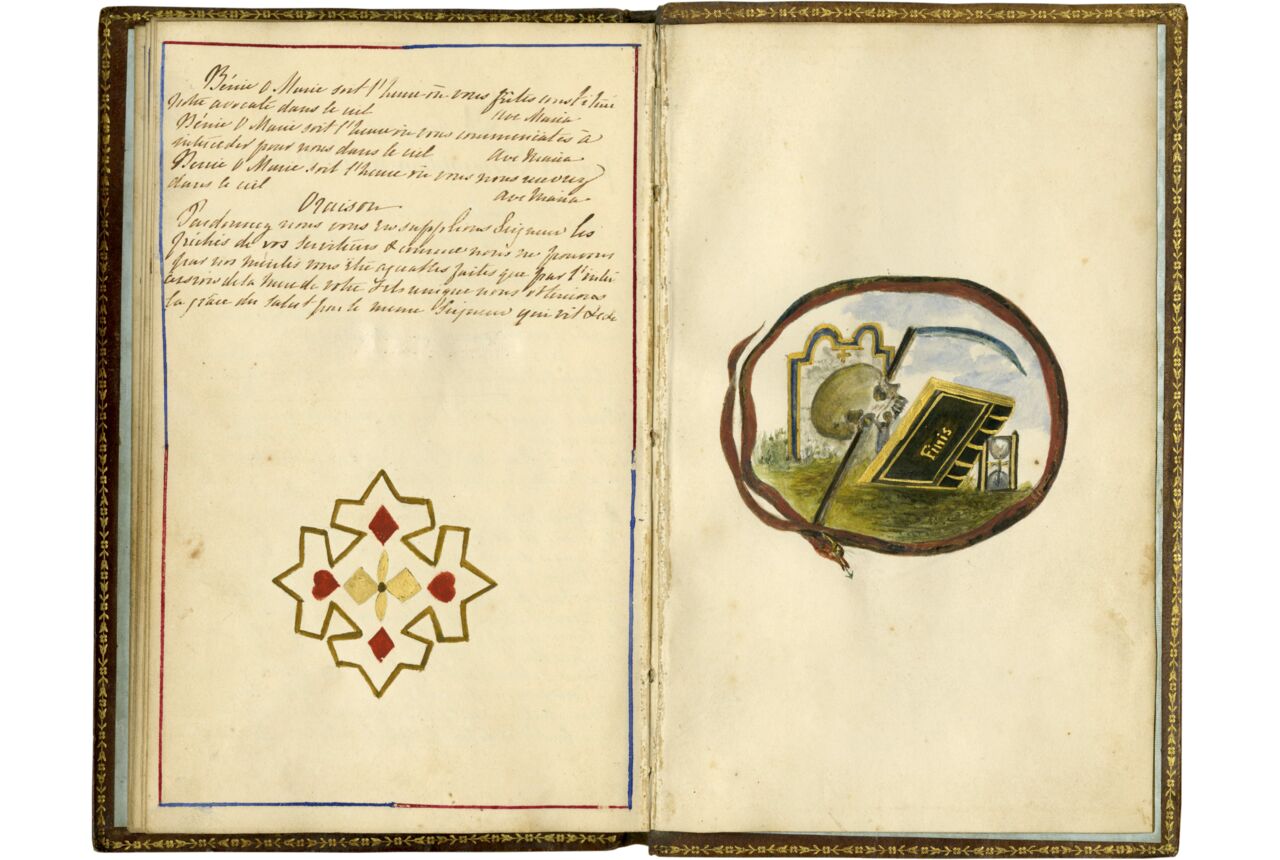 Bénie O Marie soit l'heure où vous fûtes constitué
notre avocate dans le ciel Ave Maria
Bénie O Marie soit l'heure où vous commençates à
intercéder pour nous dans le ciel Ave Maria
Benie O Marie soit l'heure où vous nous recevrez
dans le ciel Ave Maria
Oraison
Pardonnez nous vous en supplions Seigneur les
péchés de vos serviteurs & comme nous ne pouvons
par nos mérites vous être agreables faites que par l'inter
cession de la mere de votre fils unique nous obtenions
la grâce du salut par le meme Seigneur qui vit &
Finis